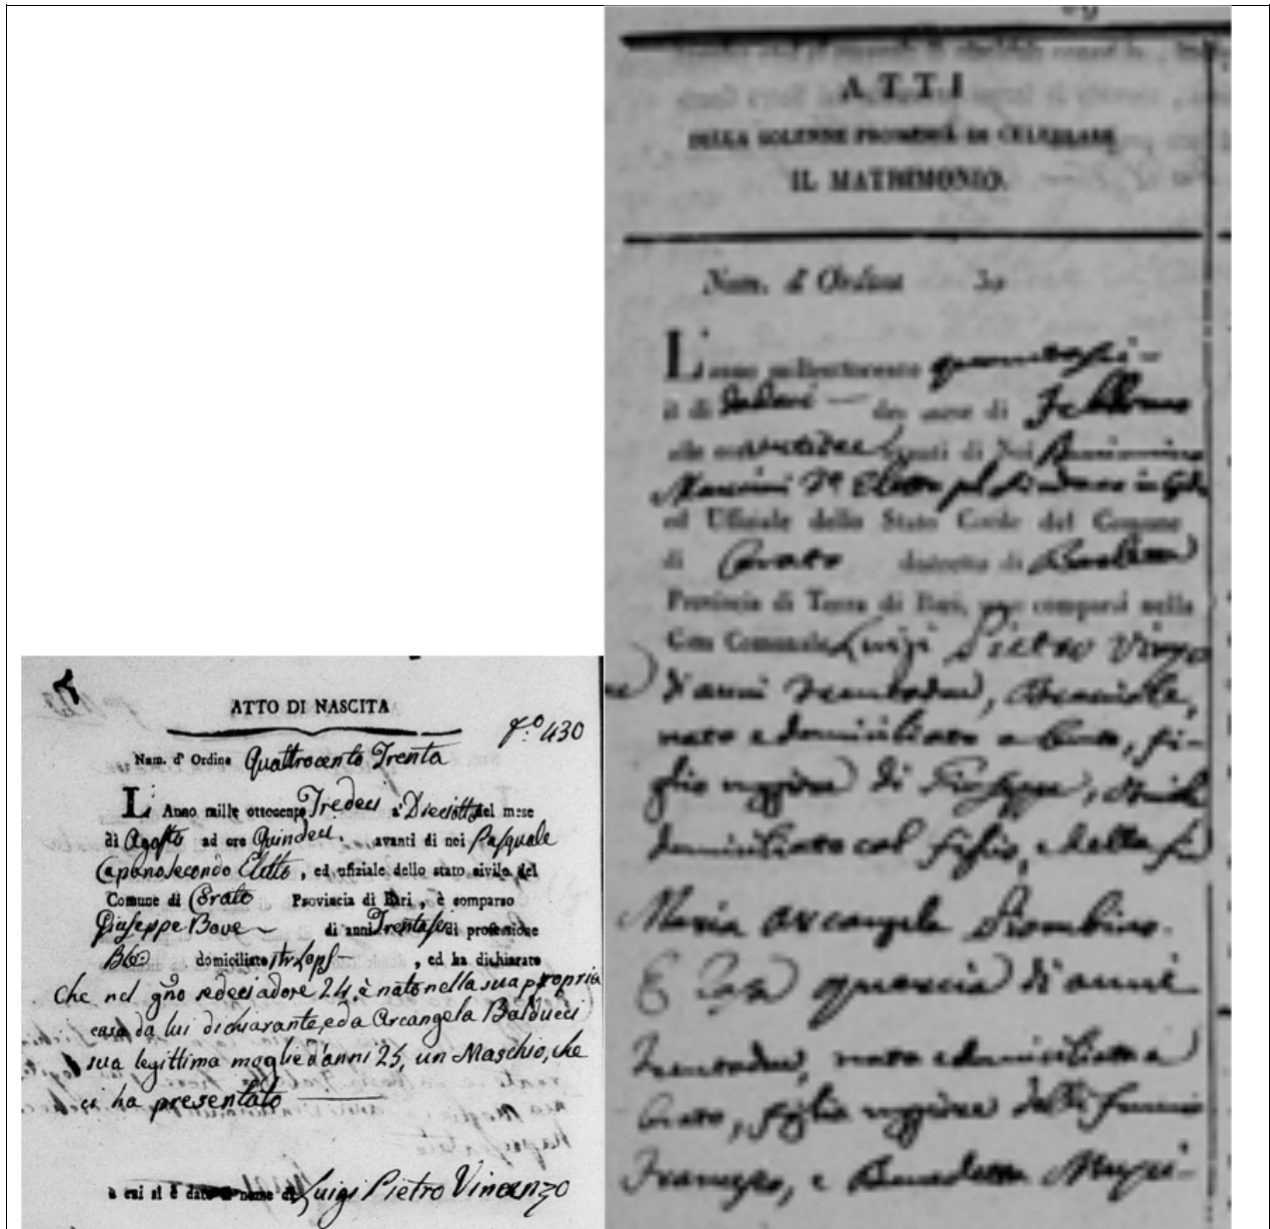 ATTO DI NASCITA
f.º 430
Num. d' Ordine Quattrocento Trenta
L' Anno mille ottocento Tredeci a' Dieciotto del mese
di Agosto ad ore Quindeci avanti di noi Pasquale
Capano secondo Eletto, ed ufiziale dello stato civile del
Comune di Corato Provincia di Bari, è comparso
Giuseppe Bove di anni Trentasei di professione
domiciliato, ed ha dichiarato
che nel gno sedeci ad ore 24, è nato nella sua propria
casa da lui dichiarante, e da Arcangela Balducci
sua legittima moglie d'anni 25, un Maschio, che
ci ha presentato
a cui si è dato il nome di Luigi Pietro Vincenzo
ATTI
DELLA SOLENNE PROMESSA DI CELEBRARE
IL MATRIMONIO.
Num. d' Ordine 30
L' anno milleottocento quarantasei
il di dodeci del mese di Febbraro
alle ore avanti di Noi Beniamino
Mancini 2º Eletto pel Sindaco in
ed Uffiziale dello Stato Civile del Comune
di Corato distretto di Barletta
Provincia di Terra di Bari, sono comparsi nella
Casa Comunale Luigi Pietro
di anni trentadue,
nato e domiciliato a Corato, fi-
glio maggiore di Giuseppe,
domiciliato col figlio, e della fu
Maria Arcangela Piombino.
E Rosa Quercia di anni
trentadue, nata e domiciliata a
Corato, figlia maggiore delli furono
Francesco, e Benedetta